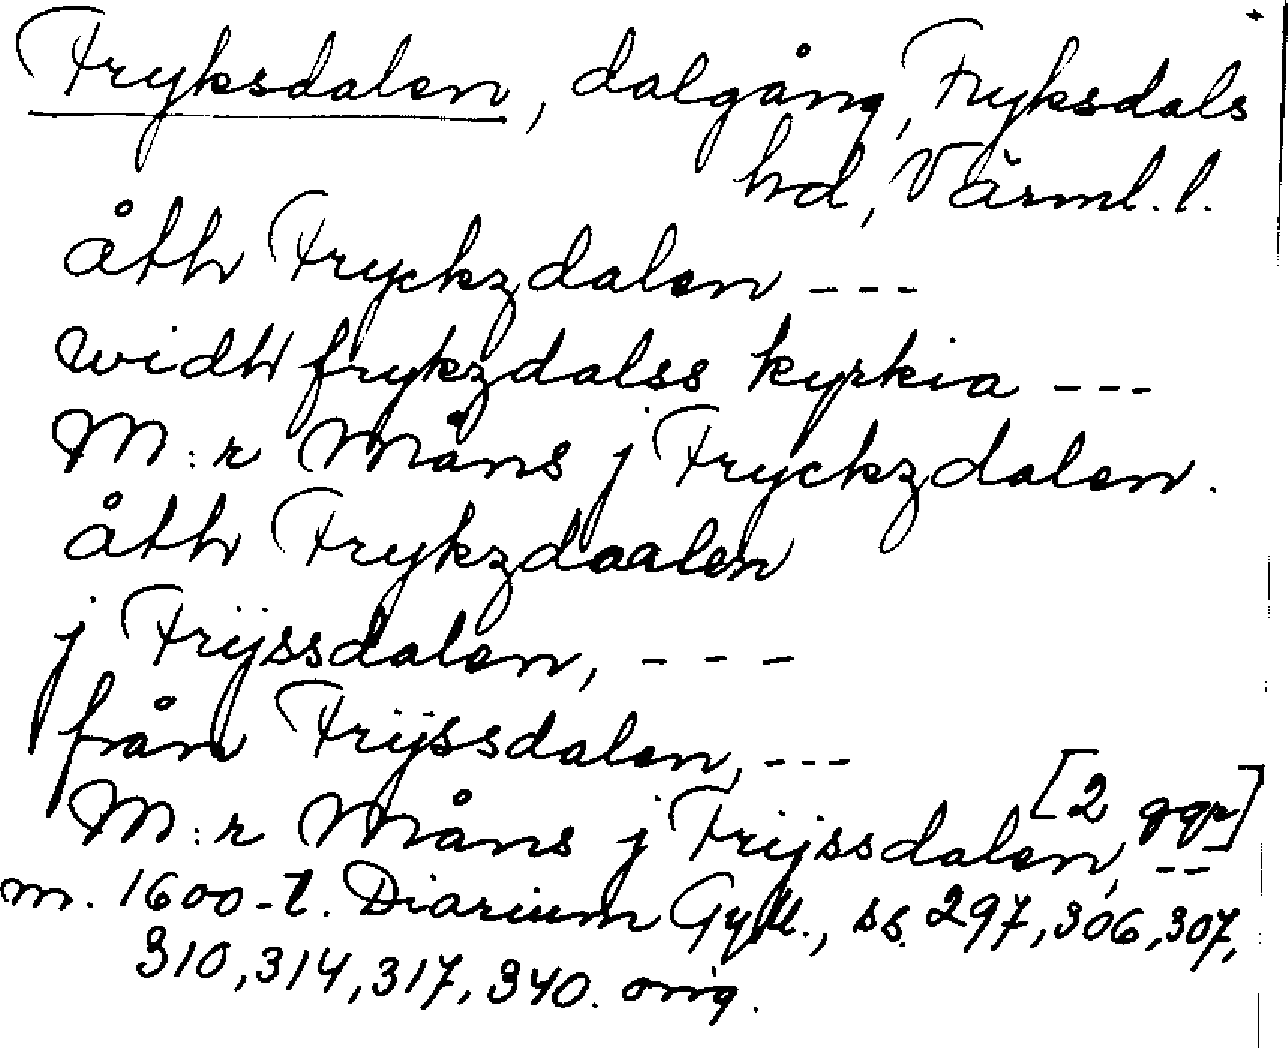 Fryksdalen, dalgång, Fryksdals
hd, Värml. l.
åth Fryckzdalen ---
widh frykzdalss kyrkia ---
M:r Måns j Fryckzdalen.
åth Frykzdaalen
j Frijssdalen, ---
från Frijssdalen, ---
[2 ggr]
M:r Måns j Frijssdalen, --
m. 1600-t. Diarium Gyll., ss. 297, 306, 307,
310, 314, 317, 340. orig.